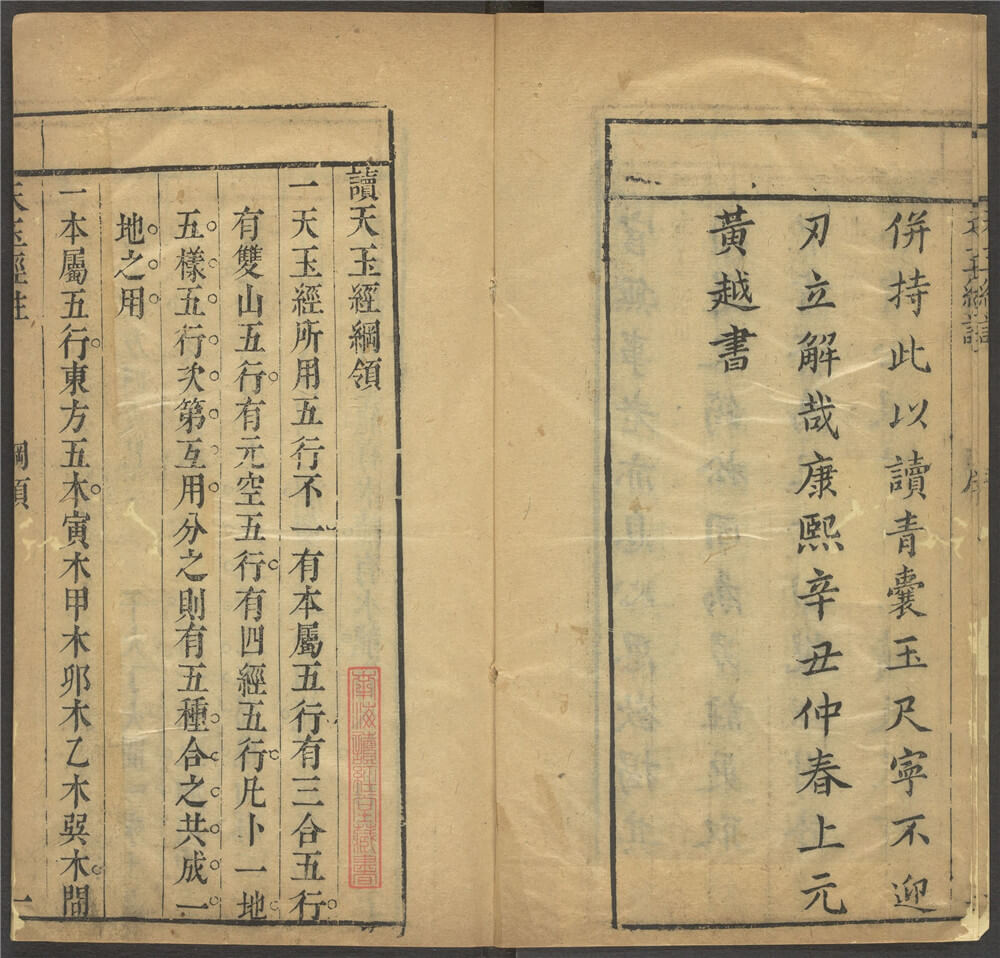 併持此以讀青囊玉尺寧不迎
刃立解哉康熙辛丑仲春上元
黃越書
讀天玉經綱領
一天玉經所用五行不一有本屬五行有三合五行
有雙山五行有元空五行有四經五行凡卜一地
五樣五行次第互用分之則有五種合之共成一
地之用
一本屬五行東方五木寅木甲木卯木乙木巽木間
天玉經註
綱領
一